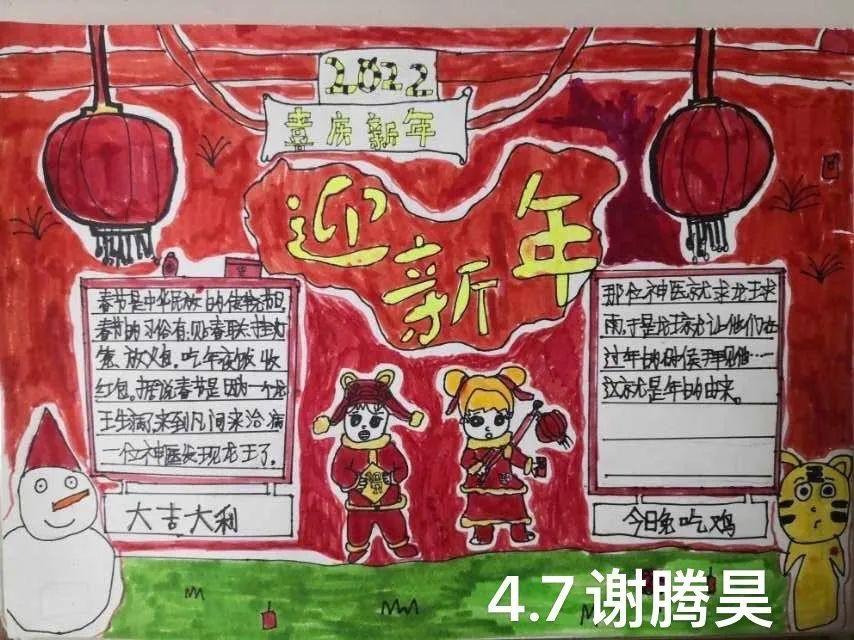 2022
喜庆新年
迎新年
春节是中华民族的传统节日
春节的习俗有:贴春联、挂灯
笼、放火包、吃年夜饭、收
红包。据说春节是因为一个龙
王生病了来到凡间来治病
一位神医发现龙王了。
那位神医就求龙王求
雨,于是龙王就让他们在
过年的时候拜见他……
这就是年的由来。
大吉大利
今日兔吃鸡
4.7谢腾昊